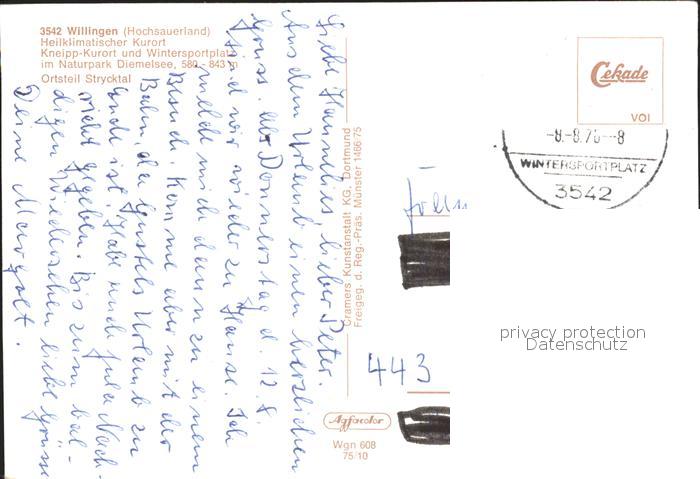 3542 Willingen (Hochsauerland)
Heilklimatischer Kurort
Kneipp-Kurort und Wintersportplatz
im Naturpark Diemelsee, 580 - 843 m
Ortsteil Strycktal
Liebe Hannelies, lieber Peter.
Aus dem Urlaub einen herzlichen
Gruss. Ab Donnerstag d. 12.8.
sind wir wieder zu Hause. Ich
melde mich dann zu einem
Besuch. Komme aber mit der
Bahn, da Urlaub zu
auch ist. Habe auch
nicht gegeben. Bis zum bal-
digen Wiedersehen liebe Grüsse
Deine Margret.
Cramers Kunstanstalt KG, Dortmund
Freigeg. d. Reg.-Präs. Münster 1466/75
Cekade
VOI
-8.-8.76--8
WINTERSPORTPLATZ
3542
443
Agfacolor
Wgn 608
75/10
privacy protection
Datenschutz